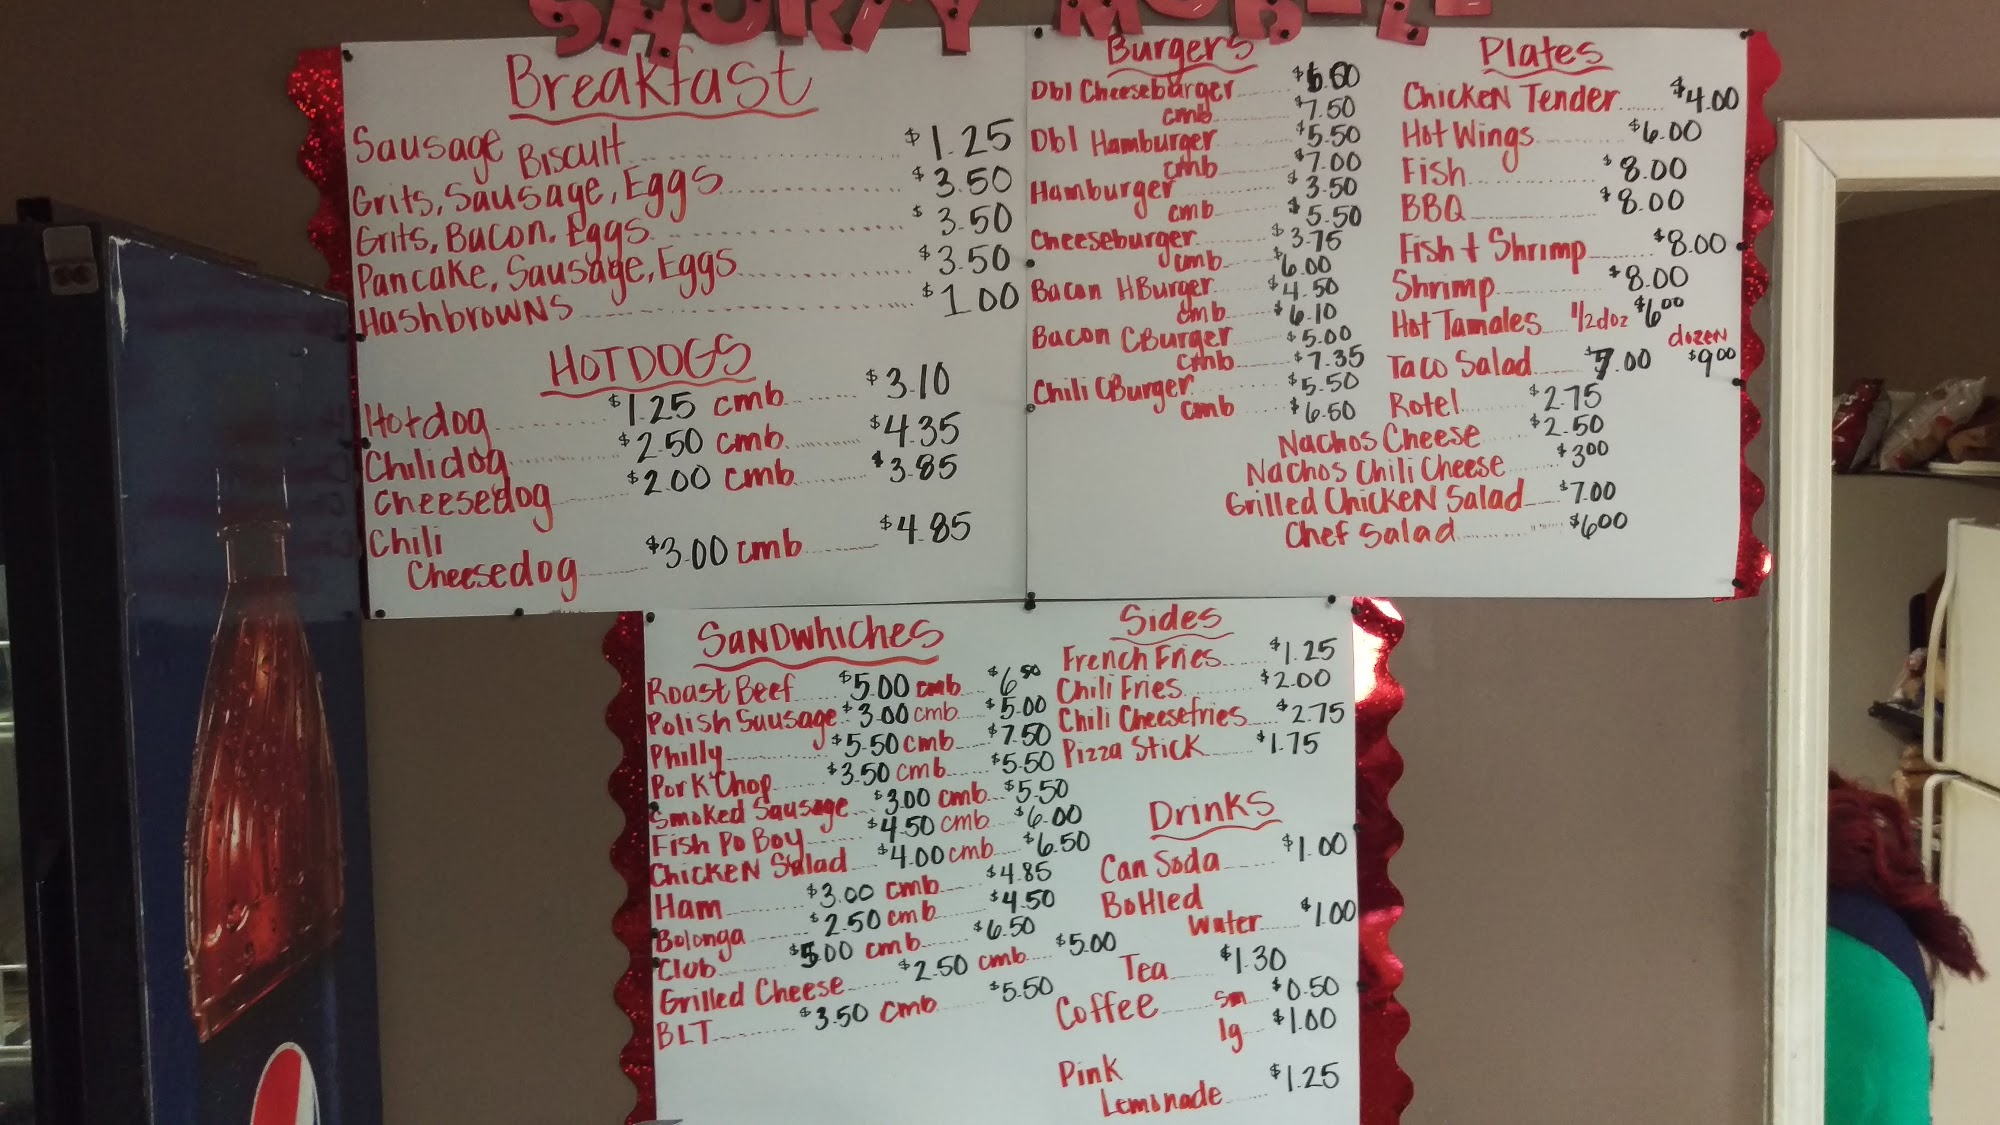 SHORTY MOBILE
Breakfast
Sausage Biscuit $1.25
Grits, Sausage, Eggs $3.50
Grits, Bacon, Eggs $3.50
Pancake, Sausage, Eggs $3.50
Hashbrowns $1.00
HOTDOGS
Hotdog $1.25 cmb $3.10
Chilidog $2.50 cmb $4.35
Cheesedog $2.00 cmb $3.85
Chili
Cheesedog $3.00 cmb $4.85
Burgers
Dbl Cheeseburger $6.00
cmb $7.50
Dbl Hamburger $5.50
cmb $7.00
Hamburger $3.50
cmb $5.50
Cheeseburger $3.75
cmb $6.00
Bacon HBurger $4.50
cmb $6.10
Bacon CBurger $5.00
cmb $7.35
Chili CBurger $5.50
cmb $6.50
Plates
Chicken Tender $4.00
Hot Wings $6.00
Fish $8.00
BBQ $8.00
Fish + Shrimp $8.00
Shrimp $8.00
Hot Tamales 1/2 doz $6.00
dozen $9.00
Taco Salad $7.00
Rotel $2.75
Nachos Cheese $2.50
Nachos Chili Cheese $3.00
Grilled Chicken Salad $7.00
Chef Salad $6.00
Sandwhiches
Roast Beef $5.00 cmb $6.50
Polish Sausage $3.00 cmb $5.00
Philly $5.50 cmb $7.50
Pork Chop $3.50 cmb $5.50
Smoked Sausage $3.00 cmb $5.50
Fish Po Boy $4.50 cmb $6.00
Chicken Salad $4.00 cmb $6.50
Ham $3.00 cmb $4.85
Bolonga $2.50 cmb $4.50
Club $5.00 cmb $6.50
Grilled Cheese $2.50 cmb $5.00
BLT $3.50 cmb $5.50
Sides
French Fries $1.25
Chili Fries $2.00
Chili Cheesefries $2.75
Pizza Stick $1.75
Drinks
Can Soda $1.00
Bottled
Water $1.00
Tea $1.30
Coffee sm $0.50
lg $1.00
Pink
Lemonade $1.25